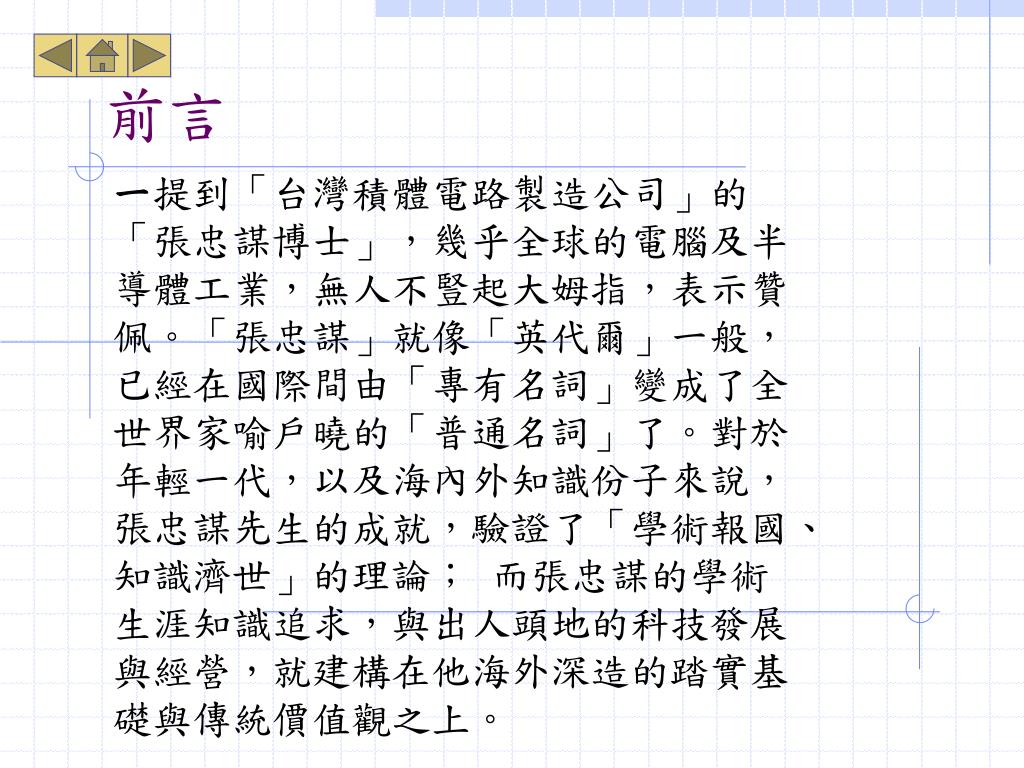 前言
一提到「台灣積體電路製造公司」的
「張忠謀博士」，幾乎全球的電腦及半
導體工業，無人不豎起大姆指，表示贊
佩。「張忠謀」就像「英代爾」一般，
已經在國際間由「專有名詞」變成了全
世界家喻戶曉的「普通名詞」了。對於
年輕一代，以及海內外知識份子來說，
張忠謀先生的成就，驗證了「學術報國、
知識濟世」的理論； 而張忠謀的學術
生涯知識追求，與出人頭地的科技發展
與經營，就建構在他海外深造的踏實基
礎與傳統價值觀之上。